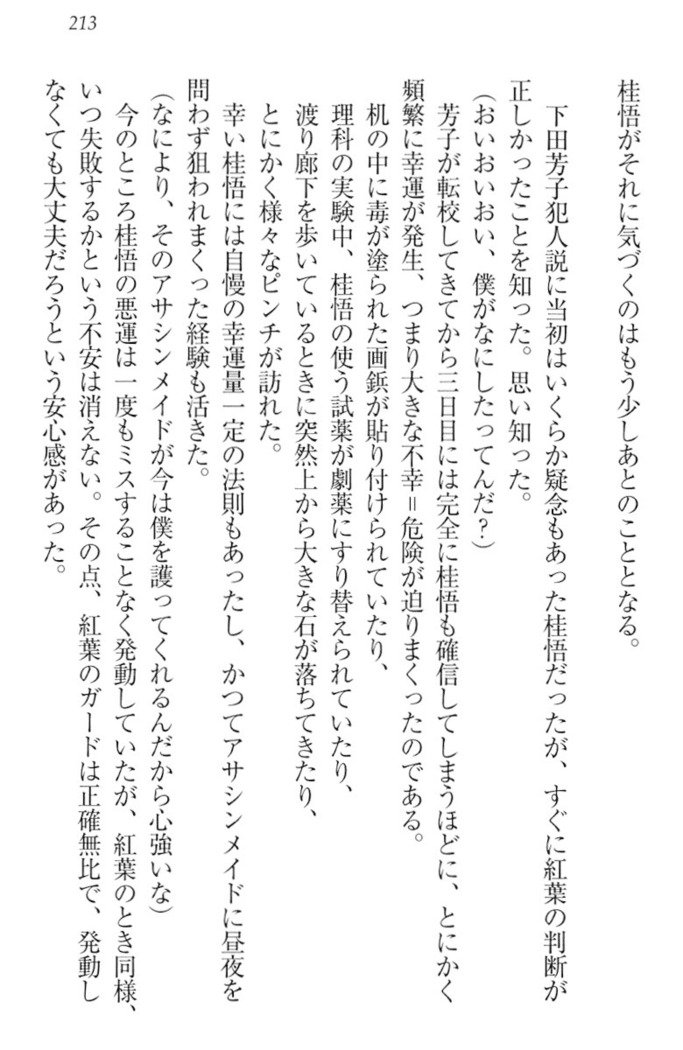 213
桂悟がそれに気づくのはもう少しあとのこととなる。
下田芳子犯人説に当初はいくらか疑念もあった桂悟だったが、すぐに紅葉の判断が
正しかったことを知った。思い知った。
(おいおいおい、僕がなにしたってんだ?)
芳子が転校してきてから三日目には完全に桂悟も確信してしまうほどに、とにかく
頻繁に幸運が発生、つまり大きな不幸＝危険が迫りまくったのである。
机の中に毒が塗られた画鋲が貼り付けられていたり、
理科の実験中、桂悟の使う試薬が劇薬にすり替えられていたり、
渡り廊下を歩いているときに突然上から大きな石が落ちてきたり、
とにかく様々なピンチが訪れた。
幸い桂悟には自慢の幸運量一定の法則もあったし、かつてアサシンメイドに昼夜を
問わず狙われまくった経験も活きた。
(なにより、そのアサシンメイドが今は僕を護ってくれるんだから心強いな)
今のところ桂悟の悪運は一度もミスすることなく発動していたが、紅葉のとき同様、
いつ失敗するかという不安は消えない。その点、紅葉のガードは正確無比で、発動し
なくても大丈夫だろうという安心感があった。